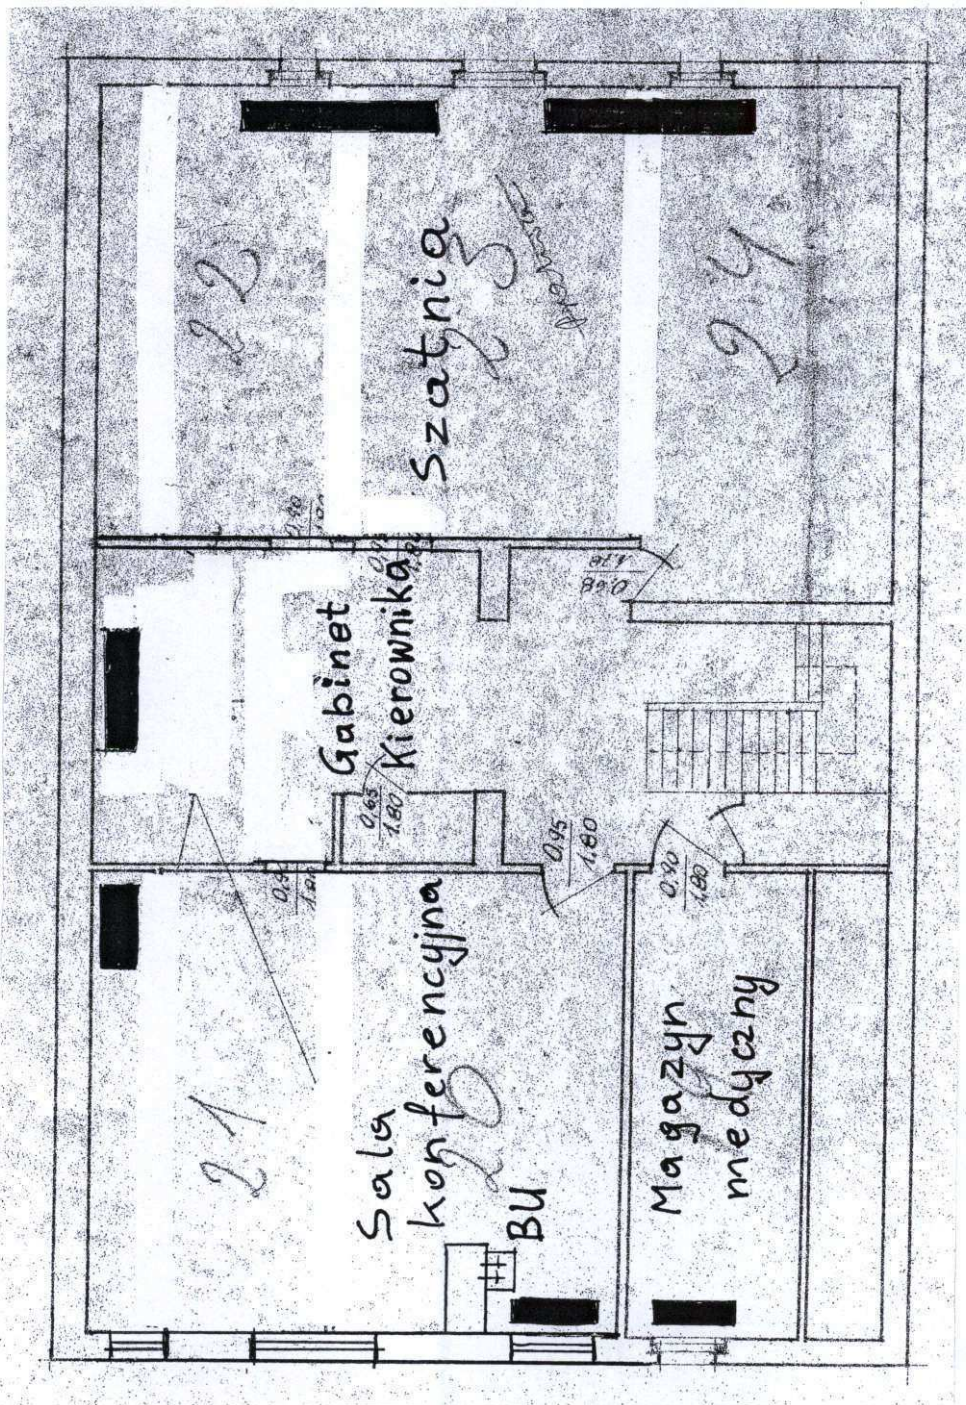 22
Szatnia
23
24
0,90
0,68
1,78
Gabinet
Kierownika
0,65
1.80
0,95
1,80
0,90
1,80
21
Sala
konferencyjna
20
BU
Magazyn
medyczny